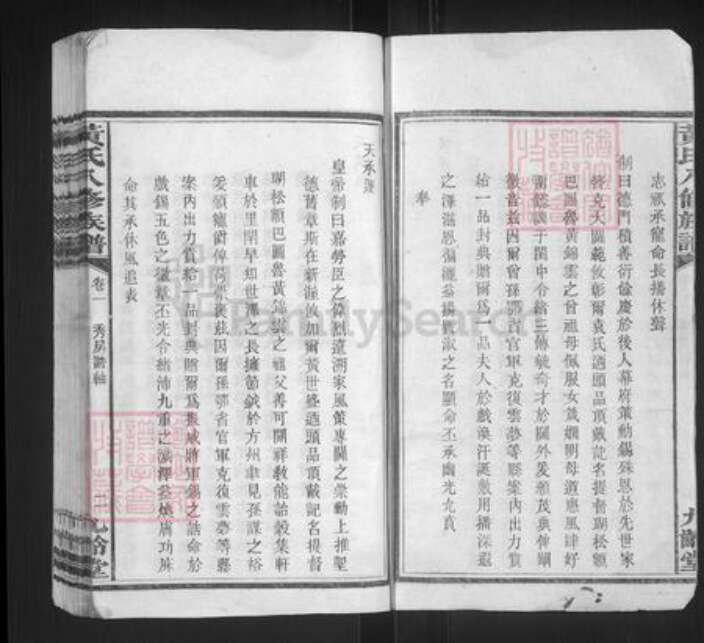 黃氏八修族譜
九齡堂
志祗承寵命長播休聲
制曰德門積善衍餘慶於後人幕府策勳錫殊恩於先世家
大閫範攸彰爾袁氏迺頭品頂戴記名提督瑚松額
巴圖魯黃錦雲之曾祖母佩服女箴嫺明母道惠風肆好
於閨中令緒三傳毓奇才於閫外爰頒茂典俾闡
徽音茲因爾曾孫鄂省官軍克復雲夢等縣案內出力賞
給一品封典贈爾爲一品夫人於戲渙汗誕敷用播深遠
之澤滋恩彌渥益揚淑之名顯命丕承幽光允賁
奉
天承運
皇帝制曰嘉勞臣之偉烈遠溯家風策專閫之崇勳上推堅
德舊章斯在新渥攸加爾黃世迺頭品頂戴記名提督
瑚松額巴圖魯黃錦雲之祖父善可開祥教能詒穀集軒
車於里閈早知世澤之長擁節鉞於方州聿見孫謀之裕
爰頒寵爵俾後茲因爾孫鄂省官軍克復雲夢等縣
案內出力賞給一品封典贈爾爲振威將軍錫之誥命於
戲錫五色之徽章丕光令緒沛九重之渥澤益煥膚功殊
命其承休風遠表
黃氏八修族譜
卷一
秀房誥軸
九齡堂
FamilySearch